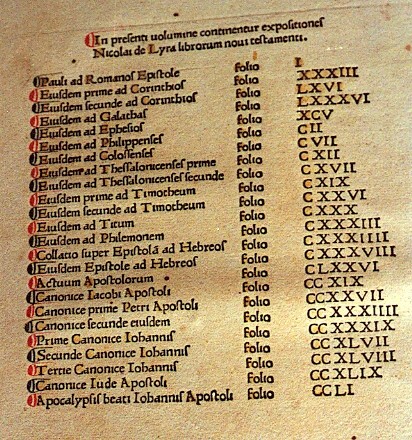 In presenti uolumine continentur expositiones
Nicolai de Lyra librorum noui testamenti.
Pauli ad Romanos Epistole folio I
Eiusdem prime ad Corinthios folio XXXIII
Eiusdem secunde ad Corinthios folio LXVI
Eiusdem ad Galathas folio LXXXVI
Eiusdem ad Ephesios folio XCV
Eiusdem ad Philippenses folio CII
Eiusdem ad Colossenses folio CVII
Eiusdem ad Thessalonicenses prime folio CXII
Eiusdem ad Thessalonicenses secunde folio CXVII
Eiusdem prime ad Timotheum folio CXIX
Eiusdem secunde ad Timotheum folio CXXVI
Eiusdem ad Titum folio CXXX
Eiusdem ad Philemonem folio CXXXIII
Collatio super Epistolã ad Hebreos folio CXXXIIII
Eiusdem Epistole ad Hebreos folio CXXXVIII
Actuum Apostolorum folio CLXXVI
Canonice Iacobi Apostoli folio CCXIX
Canonice prime Petri Apostoli folio CCXXVII
Canonice secunde eiusdem folio CCXXXIIII
Prime Canonice Iohannis folio CCXXXIX
Secunde Canonice Iohannis folio CCXLVII
Tertie Canonice Iohannis folio CCXLVIII
Canonice Iude Apostoli folio CCXLIX
Apocalypsis beati Iohannis Apostoli folio CCLI